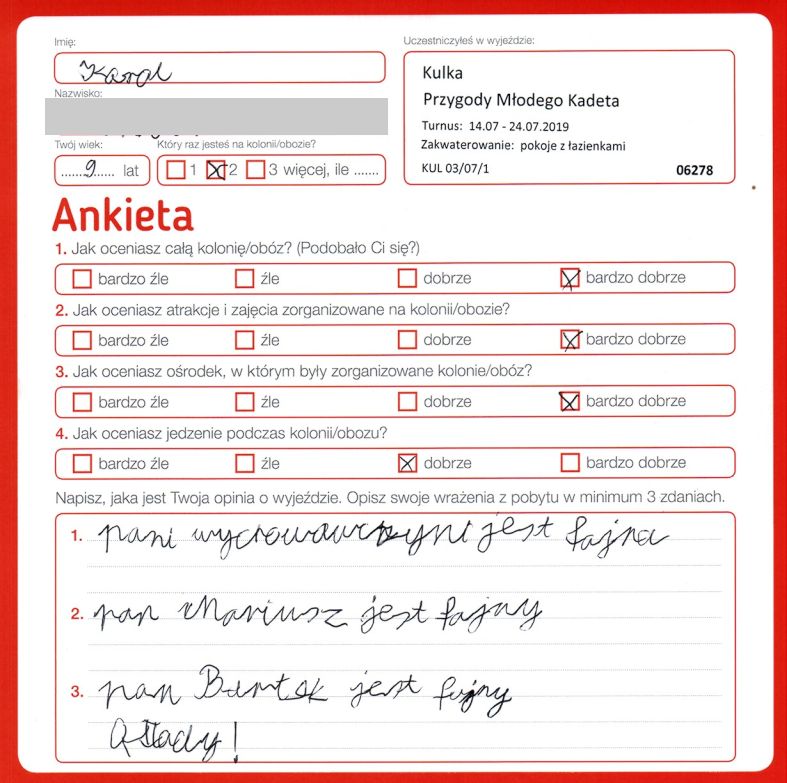 Imię:
Karol
Uczestniczyłeś w wyjeździe:
Kulka
Przygody Młodego Kadeta
Turnus: 14.07 - 24.07.2019
Zakwaterowanie: pokoje z łazienkami
KUL 03/07/1 06278
Nazwisko:
Twój wiek:
......9...... lat
Który raz jesteś na kolonii/obozie?
1 2 3 więcej, ile .......
Ankieta
1. Jak oceniasz całą kolonię/obóz? (Podobało Ci się?)
bardzo źle źle dobrze bardzo dobrze
2. Jak oceniasz atrakcje i zajęcia zorganizowane na kolonii/obozie?
bardzo źle źle dobrze bardzo dobrze
3. Jak oceniasz ośrodek, w którym były zorganizowane kolonie/obóz?
bardzo źle źle dobrze bardzo dobrze
4. Jak oceniasz jedzenie podczas kolonii/obozu?
bardzo źle źle dobrze bardzo dobrze
Napisz, jaka jest Twoja opinia o wyjeździe. Opisz swoje wrażenia z pobytu w minimum 3 zdaniach.
1. pani wychowawczyni jest fajna
2. pan Mariusz jest fajny
3. pan Bartek jest fajny